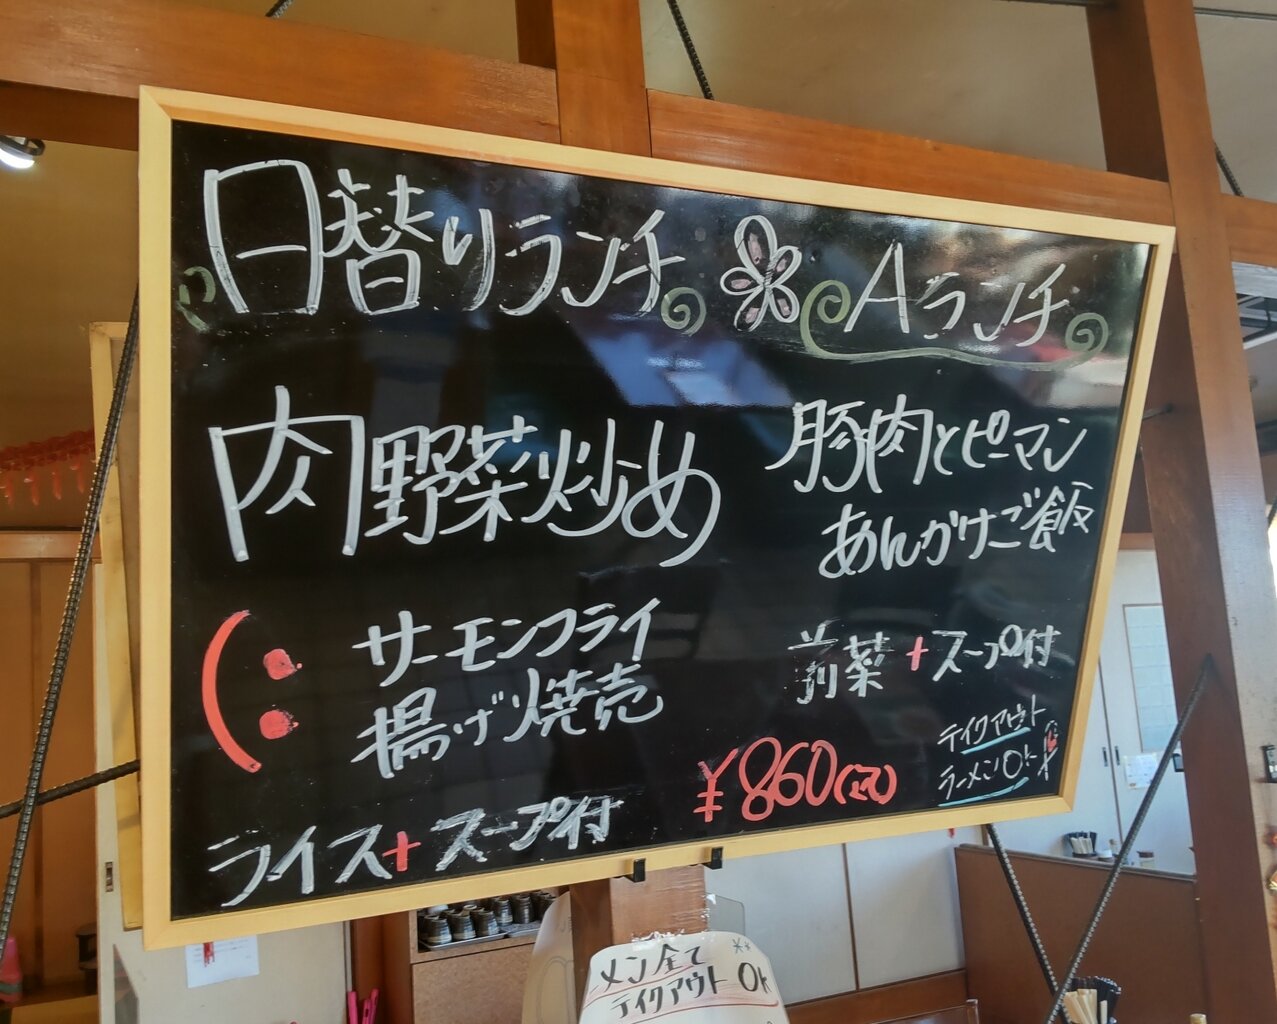 日替りランチ
肉野菜炒め
サーモンフライ
揚げ焼売
ライス+スープ付
Aランチ
豚肉とピーマン
あんかけご飯
前菜+スープ付
¥860(込)
テイクアウト
ラーメンOK
メン全て
テイクアウトOK